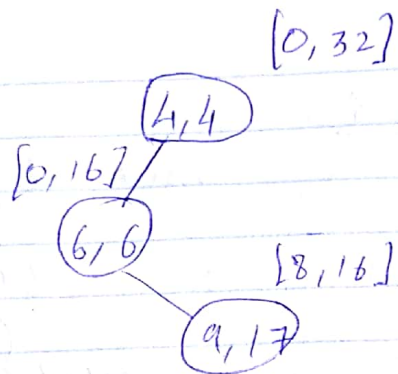 [0,32]
4,4
[0,16]
6,6
[8,16]
9,17